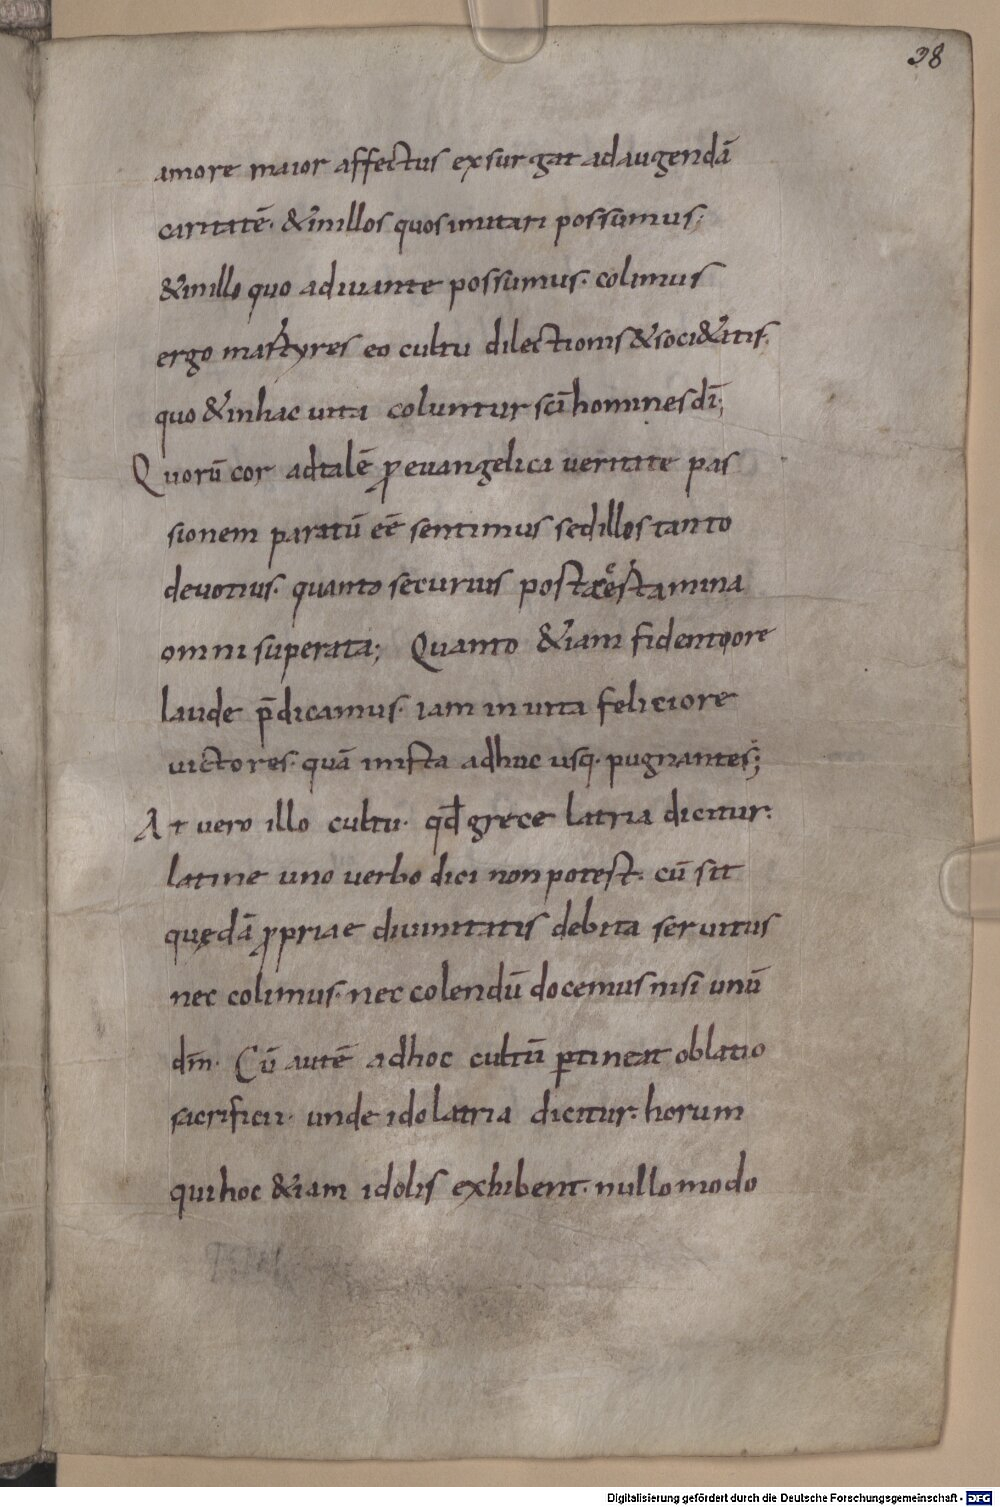 38
amore maior affectus exsurgat ad augendā
caritatē· & in illos quos imitari possumus;
& in illo quo adiuante possumus· colimus
ergo martyres eo cultu dilectionis & soci&atis·
quo & in hac uita coluntur sc̄i homines dī;
Quorū cor ad talē ꝓ euangelica ueritate pas
sionem paratū eē sentimus sed illos tanto
deuotius· quanto securius post certamina
omni superata; Quanto &iam fidentiore
laude p̄dicamus· iam in uita feliciore
uictores· quā in ista adhuc usq· pugnantes;
At uero illo cultu· qđ grece latria dicitur·
latine uno uerbo dici non potest· cū sit
quędā ꝓpriae diuinitatis debita seruitus
nec colimus· nec colendū docemus nisi unū
dm̄· Cū autē ad hoc cultū ꝑtineat oblatio
sacrificii· unde idolatria dicitur· horum
qui hoc &iam idolis exhibent· nullo modo
Digitalisierung gefördert durch die Deutsche Forschungsgemeinschaft - DFG